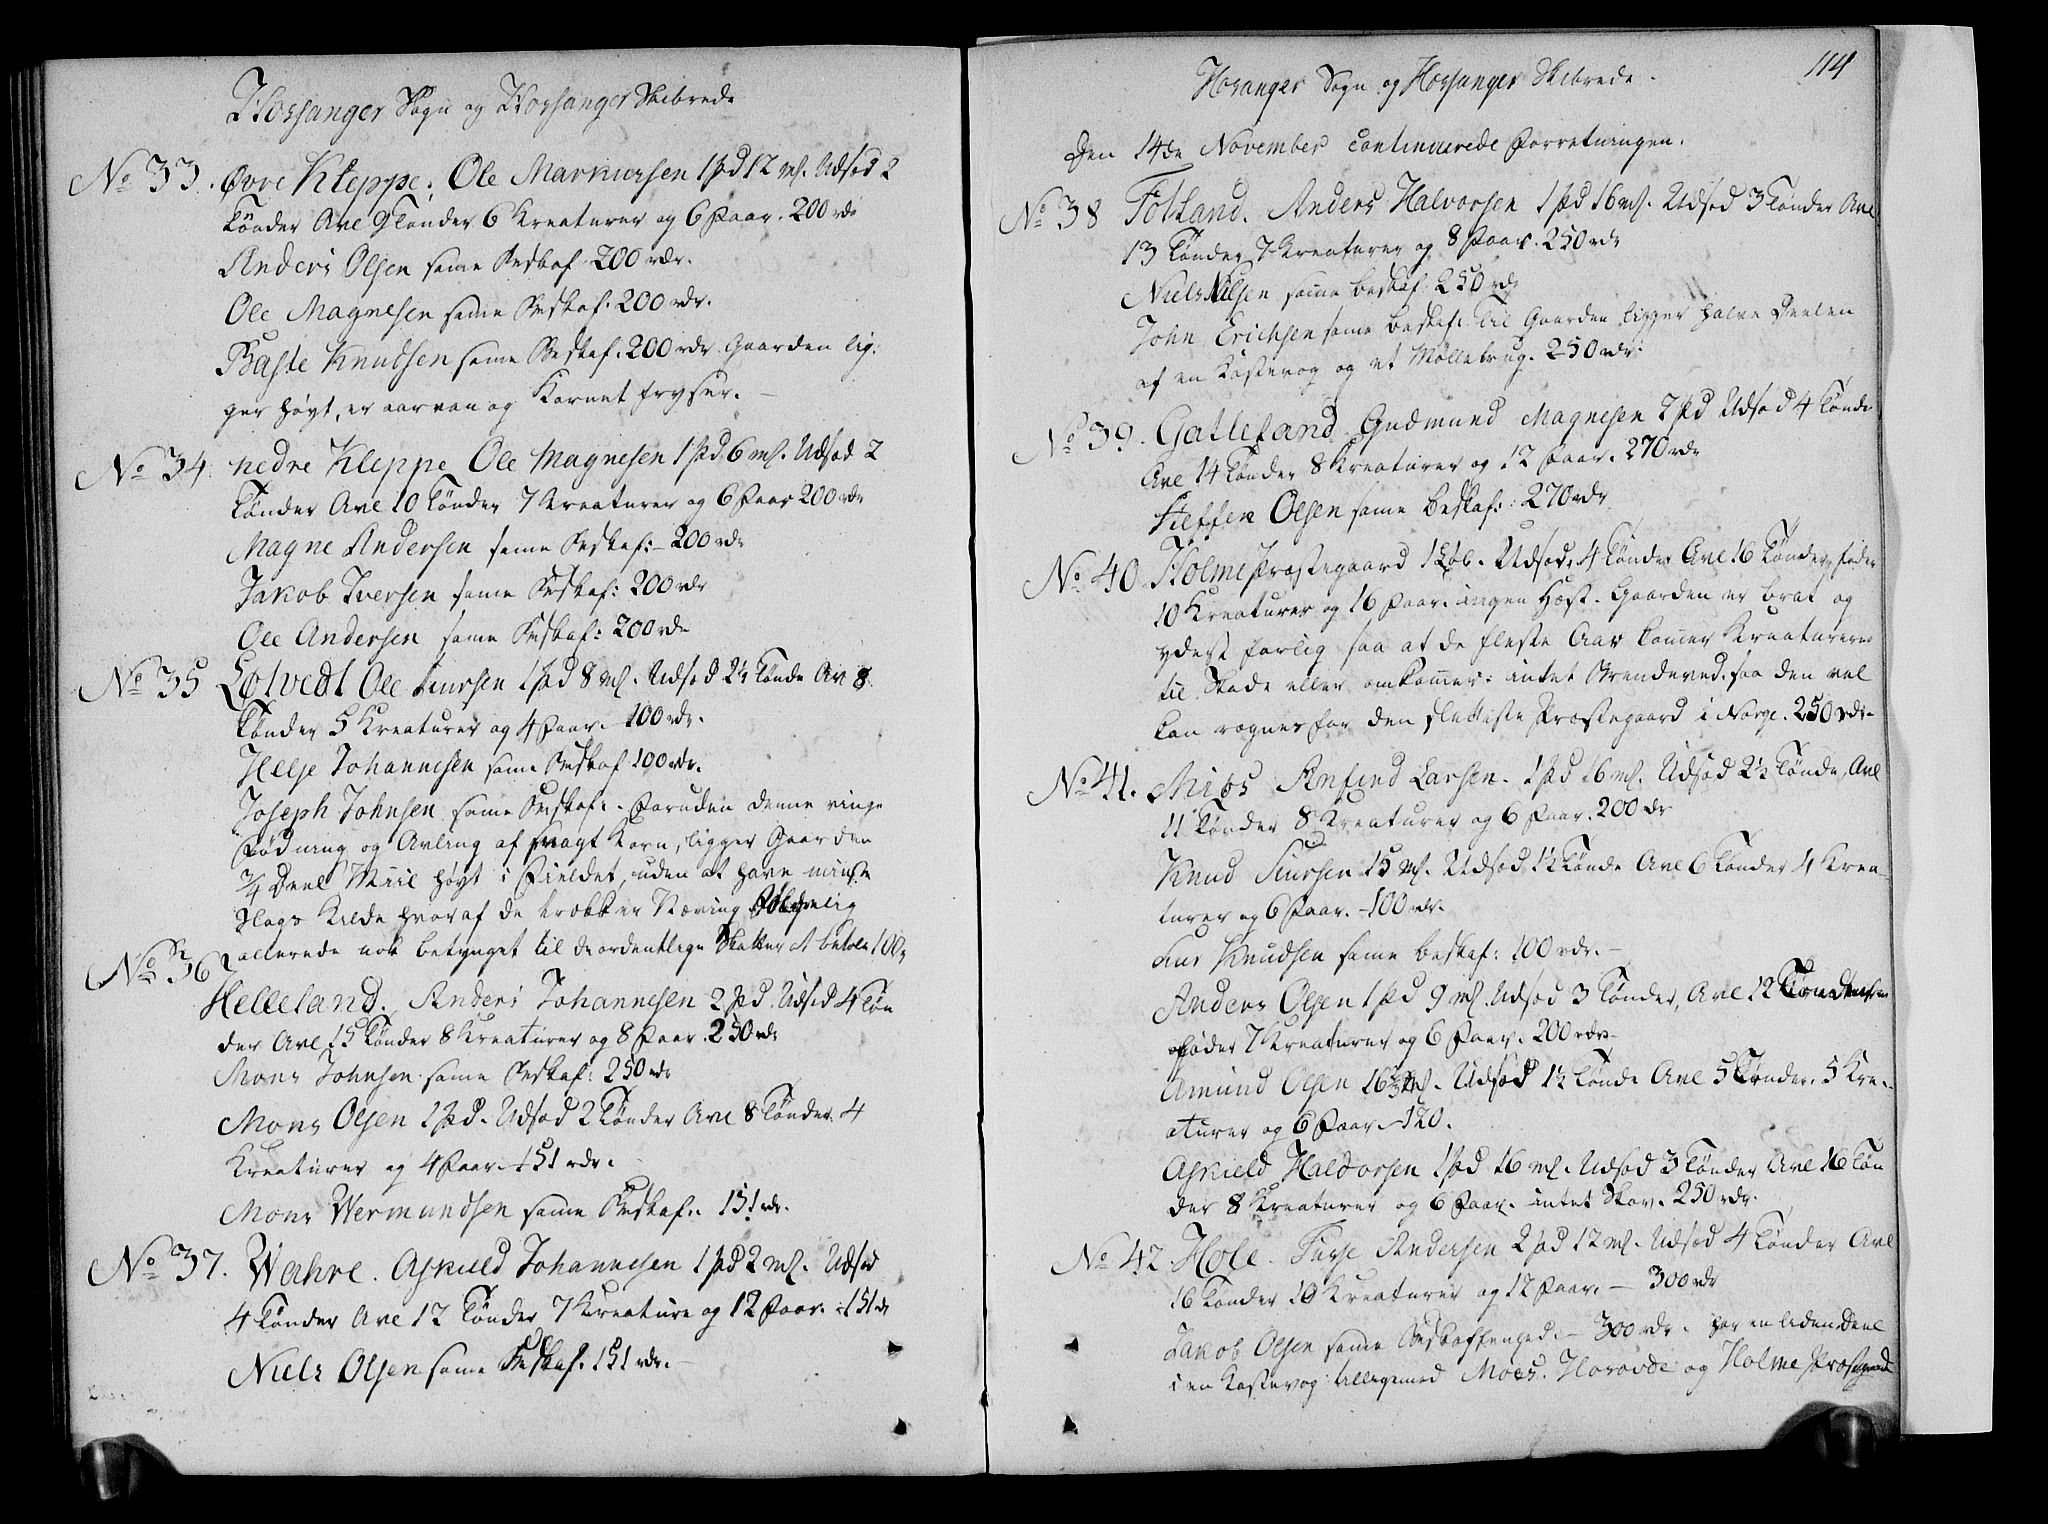 Hossanger Sogn og Hossanger Skibrede
No 33. Øvre Kleppe. Ole Markursen 1 pd 12 ml. Udsæd 2
Tønder Avl 9 Tønder 6 Kreaturer og 6 Faar. 200 rdr
Anders Olsen same Beskaf. 200 rdr.
Ole Magnesen same Beskaf. 200 rdr.
Baste Knudsen same Beskaf. 200 rdr. Gaarden lig-
ger høyt, er aarvan og Kornet fryser. —
No 34. nedre Kleppe Ole Magnesen 1 pd 6 ml. Udsæd 2
Tønder Avl 10 Tønder 7 Kreaturer og 6 Faar 200 rdr
Magne Andersen same Beskaf: 200 rdr
Jakob Iversen same Beskaf: 200 rdr
Ole Andersen same Beskaf: 200 rdr
No 35 Løtvedt Ole Siursen 1 pd 8 ml. Udsæd 2½ Tønde Av 8
Tønder 5 Kreaturer og 4 Faar. 100 rdr.
Helje Johannesen same Beskaf 100 rdr.
Joseph Johnsen same Beskaf: Foruden denne ringe
Fødning og Avling af Korn, ligger Gaarden
¾ Deel Miil høyt i Fieldet, uden at have minste
Slags Kilde hvoraf de Næring følgelig
allerede nok betynget til de ordentlige Skatter at betale 100
No 36
Helleland. Anders Johannesen 2 pd. Udsæd 4 Tøn
der Avl 15 Tønder 8 Kreaturer og 8 Faar. 250 rdr
Mons Johnsen same Beskaf: 250 rdr
Mons Olsen 1 pd. Udsæd 2 Tønder Avl 8 Tønder. 4
Kreaturer og 4 Faar. 151 rdr.
Mons Wermundsen same Beskaf. 151 rdr.
No 37. Wahre. Askield Johannesen 1 pd 2 ml. Udsæd
4 Tønder Avl 12 Tønder 7 Kreature og 12 Faar. 151 r
Niels Olsen same Beskaf. 151 rdr.
114
Hosanger Sogn og Hossanger Skibrede.
Den 14de November continuerede Forretningen.
No 38 Totland. Anders Halvorsen 1 pd 16 ml. Udsæd 3 Tønder Avl
13 Tønder 7 Kreaturer og 8 Faar. 250 rdr
Niels Nilsen same beskaf. 250 rdr
John Erichsen same beskaf: Til Gaarden ligger halve Deelen
af en Kastevog og et Møllebrug. 250 rdr.
No 39. Galteland Gudmund Magnesen 2 pd Udsæd 4 Tønde
Avl 14 Tønder 8 Kreaturer og 12 Faar. 270 rdr
Steffen Olsen same beskaf: 270 rdr
No 40. Holme Præstegaard 1 Løb. Udsæd 4 Tønder Avl 16 Tønder, føder
10 Kreaturer og 16 Faar. ingen Hæst. Gaarden er brat og
yderst farlig saa at de fleste Aar kommer Kreaturerne
til Skade eller omkommer: intet Brendeved. saa den vel
kan regnes for den sletteste Præstegaard i Norge. 250 rdr.
No 41. Miøs Amfind Larsen. 1 pd 16 ml. Udsæd 2½ Tønde, Avl
11 Tønder 8 Kreaturer og 6 Faar. 200 dr
Knud Siursen 15 ml. Udsæd 1½ Tønde Avl 6 Tønder 4 Krea-
turer og 6 Faar. 100 rdr.
Siur Knudsen same beskaf: 100 rdr. —
Anders Olsen 1 pd 9 ml. Udsæd 3 Tønder, Avl 12 Tønder
føder 7 Kreaturer og 6 Faar. 200 rdr.
Amund Olsen 16 ml. Udsæd 1½ Tønde Avl 5 Tønder. 5 Kre-
aturer og 6 Faar. 120.
Askield Haldorsen 1 pd 16 ml. Udsæd 3 Tønder Avl 16 Tøn
der 8 Kreaturer og 6 Faar. intet Skov. 250 rdr.
No 42. Hole. Tarje Andersen 2 pd 12 ml. Udsæd 4 Tønder Avl
16 Tønder 10 Kreaturer og 12 Faar. — 300 rdr
Jakob Olsen same Beskaffenhed. — 300 rdr. har en liden Deel
i en Kastevog tilligemed Moes. Horovde og Holme Præstegaard